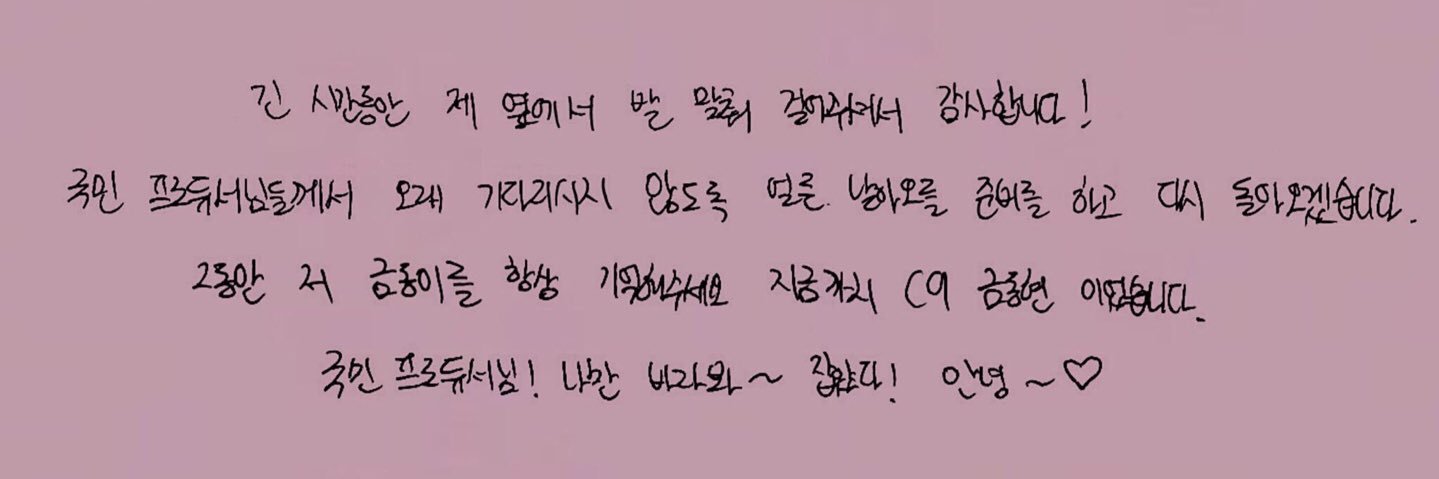 긴 시간동안 제 옆에서 발 맞춰 걸어주셔서 감사합니다!
국민 프로듀서님들께서 오래 기다리시지 않도록 얼른 날아오를 준비를 하고 다시 돌아오겠습니다.
그동안 저 금동이를 항상 기억해주세요 지금까지 C9 금동현 이었습니다.
국민 프로듀서님! 나만 바라봐~ 잡았다! 안녕~♡